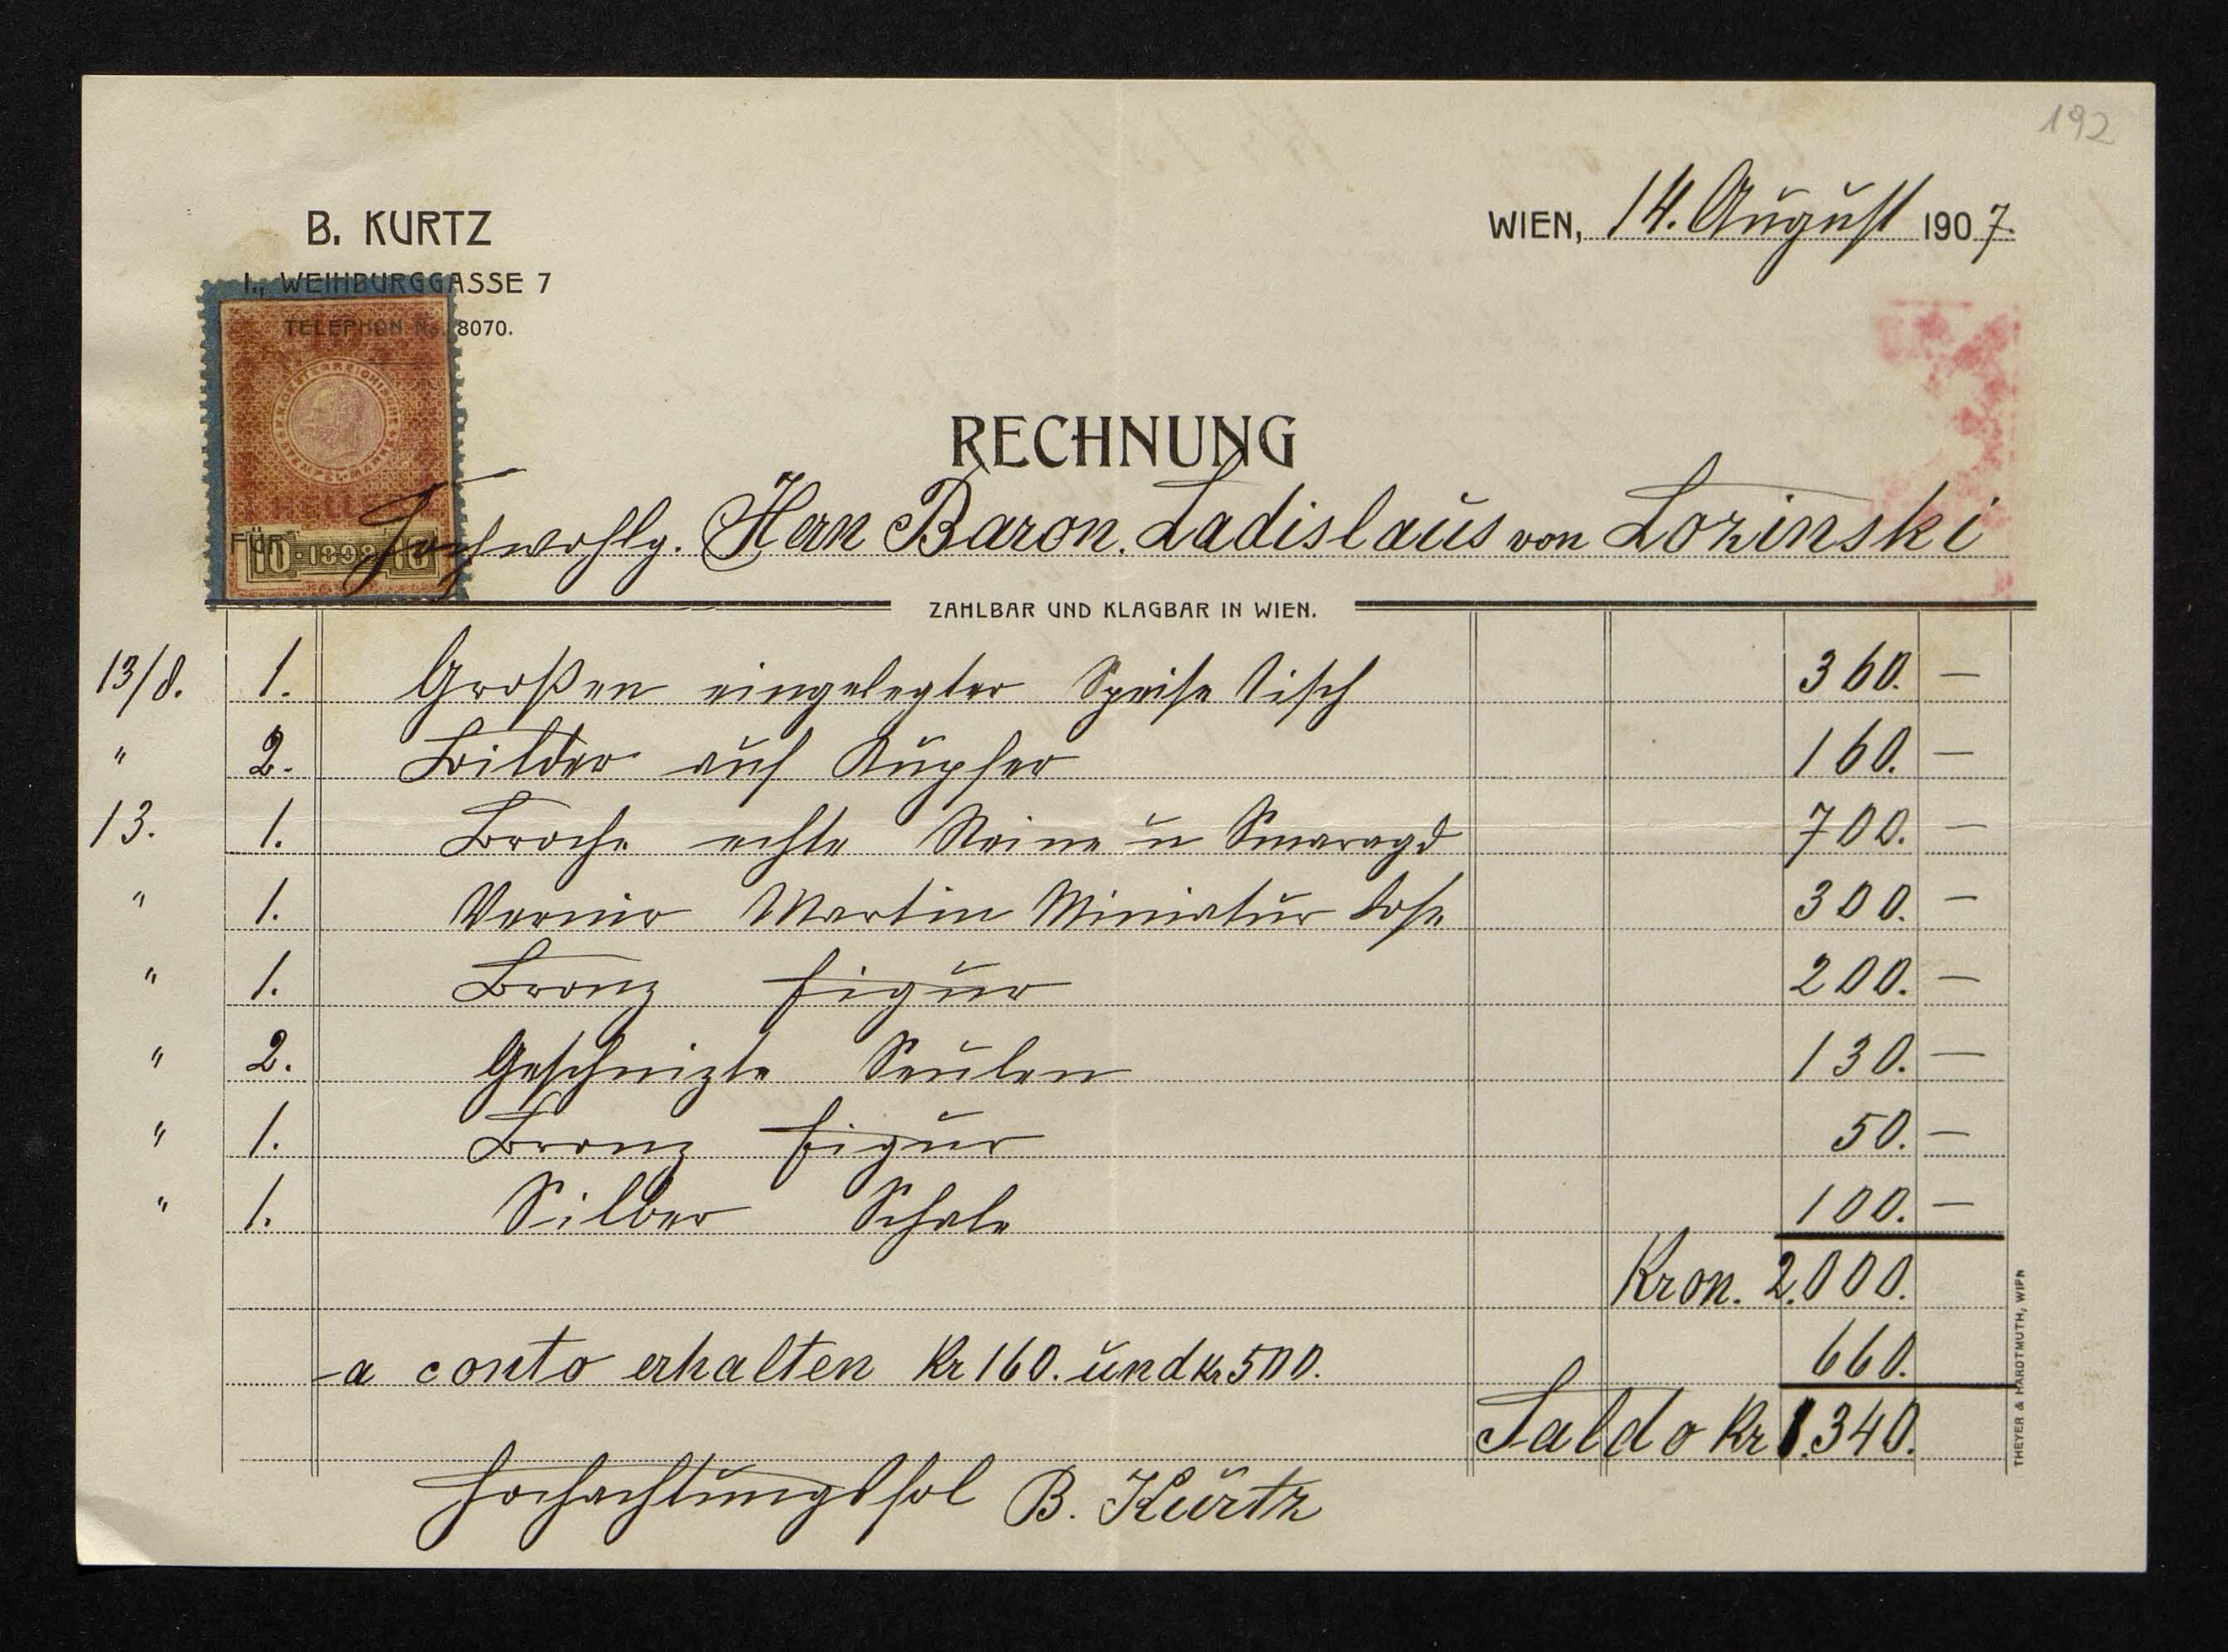 192
B. KURTZ
I., WEIHBURGGASSE 7
TELEPHON No. 8070.
WIEN, 14. August 1907.
RECHNUNG
K.K. OESTERREICHISCHE STEMPEL-MARKE
10 1898 10
FÜR Hochwohlg. Herrn Baron. Ladislaus von Lozinski
ZAHLBAR UND KLAGBAR IN WIEN.
13/8. 1. Großen eingelegter Speise Tisch 360. —
" 2. Bilder auf Kupfer 160. —
13. 1. Broche echte Steine u Smaragd 700. —
" 1. Vernir Martin Miniatur Dose 300. —
" 1. Bronz figur 200. —
" 2. Geschnizte Seulen 130. —
" 1. Bronz figur 50. —
" 1. Silber Schale 100. —
Kron. 2.000.
a conto erhalten Kr 160. und Kr 500. 660.
Saldo Kr 1.340.
Hochachtungsfol B. Kurtz
THEYER & HARDTMUTH, WIEN